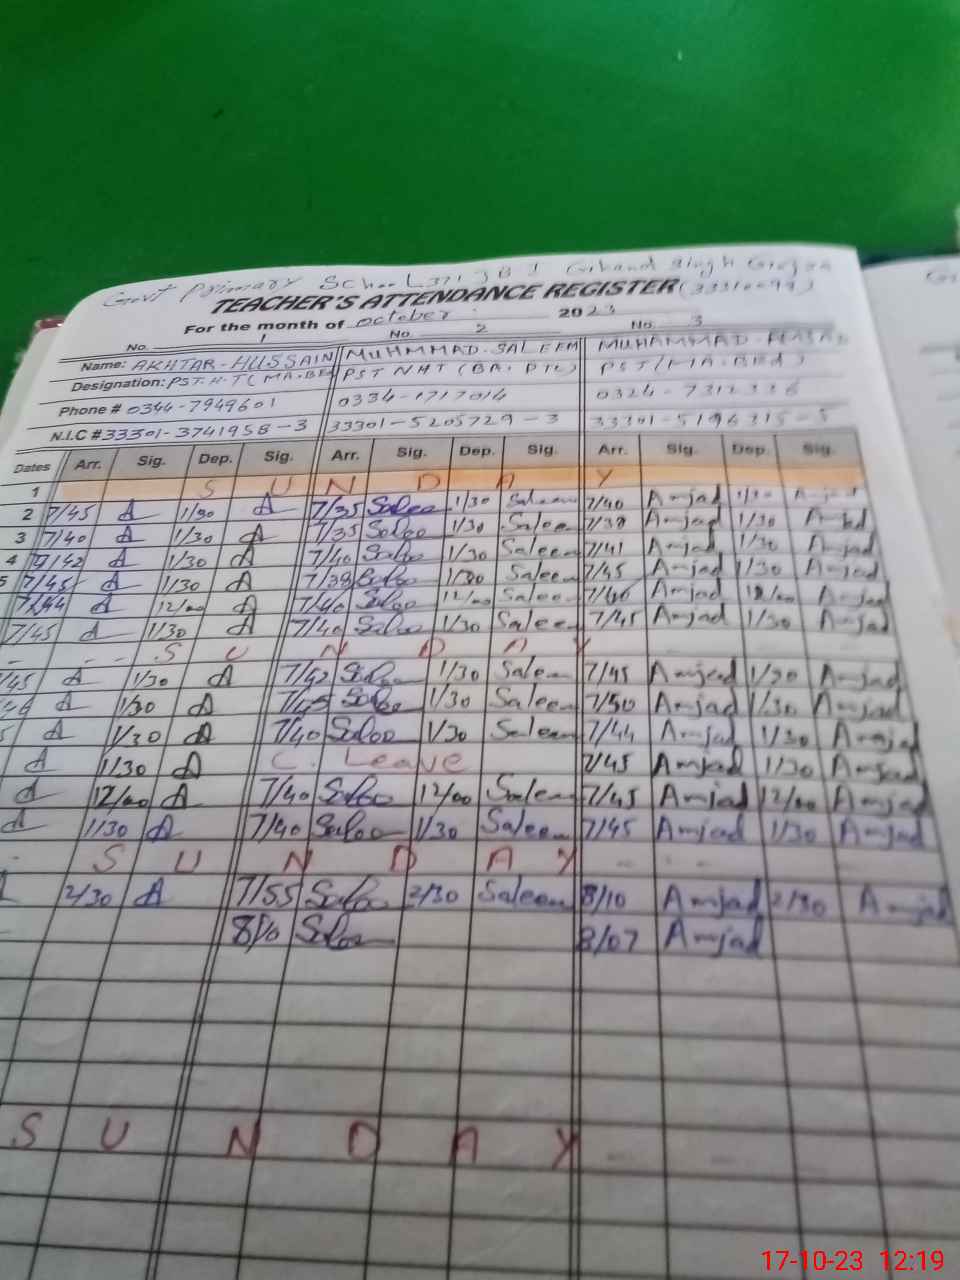 Govt Primary School 371 JB 1 Goband Singh Gojra
TEACHER'S ATTENDANCE REGISTER (33310099)
For the month of october 2023
No. 1 No. 2 No. 3
Name: AKHTAR-HUSSAIN MUHMMAD-SALEEM MUHAMMAD-AMJAD
Designation: PST.H.T (MA.BEd PST NHT (BA. PTC) PST (MA.BEd)
Phone # 0344-7949601 0334-1717014 0324-7312336
N.I.C # 33301-3741958-3 33301-5205729-3 33301-5196315-5
Dates Arr. Sig. Dep. Sig. Arr. Sig. Dep. Sig. Arr. Sig. Dep. Sig.
1 S U N D A Y
2 7/45 A 1/30 A 7/35 Saleem 1/30 Saleem 7/40 Amjad 1/30 Amjad
3 7/40 A 1/30 A 7/35 Saleem 1/30 Saleem 7/38 Amjad 1/30 Amjad
4 7/42 A 1/30 A 7/40 Saleem 1/30 Saleem 7/41 Amjad 1/30 Amjad
5 7/45 A 1/30 A 7/38 Saleem 1/30 Saleem 7/45 Amjad 1/30 Amjad
7/44 A 12/00 A 7/40 Saleem 12/00 Saleem 7/40 Amjad 12/00 Amjad
7/45 A 1/30 A 7/40 Saleem 1/30 Saleem 7/45 Amjad 1/30 Amjad
S U N D A Y
/45 A 1/30 A 7/42 Saleem 1/30 Saleem 7/45 Amjad 1/30 Amjad
A 1/30 A 7/45 Saleem 1/30 Saleem 7/50 Amjad 1/30 Amjad
A 1/30 A 7/40 Saleem 1/30 Saleem 7/44 Amjad 1/30 Amjad
A 1/30 A C. Leave 7/45 Amjad 1/30 Amjad
A 12/00 A 7/40 Saleem 12/00 Saleem 7/45 Amjad 12/00 Amjad
A 1/30 A 7/40 Saleem 1/30 Saleem 7/45 Amjad 1/30 Amjad
S U N D A Y
2/30 A 7/55 Saleem 2/30 Saleem 8/10 Amjad 2/30 Amjad
8/10 Saleem 8/07 Amjad
S U N D A Y
17-10-23 12:19